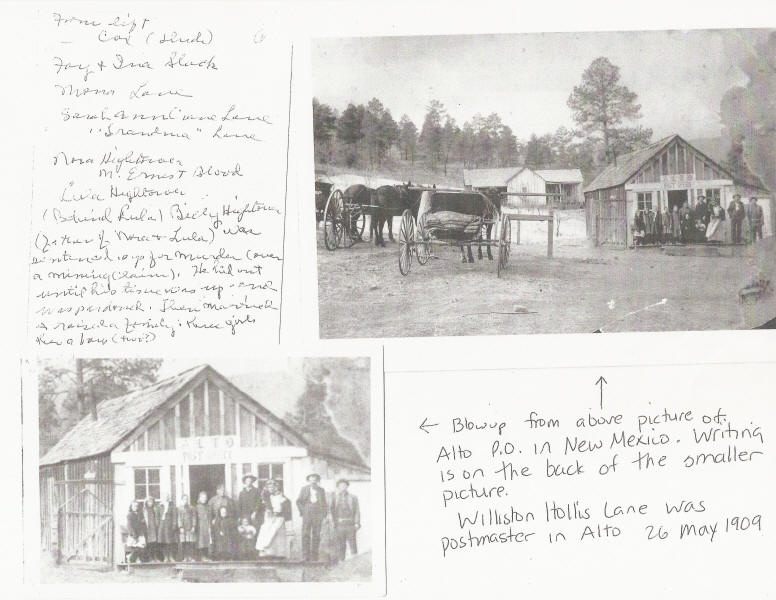 From left
Cox (dude)
Fay & Ina Slack
Mona Lane
Sarah Lane
"Grandma" Lane
Nora Hightower
m. Ernest Blood
Lula Hightower
(Behind Lula) Billy Hightower
(father of Nora & Lula) was
sentenced for murder (over
a mining claim). He hid out
until his time was up and
was pardoned. Then married
& raised a family: three girls
then a boy (two?)
ALTO
POST OFFICE
← Blowup from above picture of
Alto P.O. in New Mexico. Writing
is on the back of the smaller
picture.
Williston Hollis Lane was
postmaster in Alto 26 May 1909